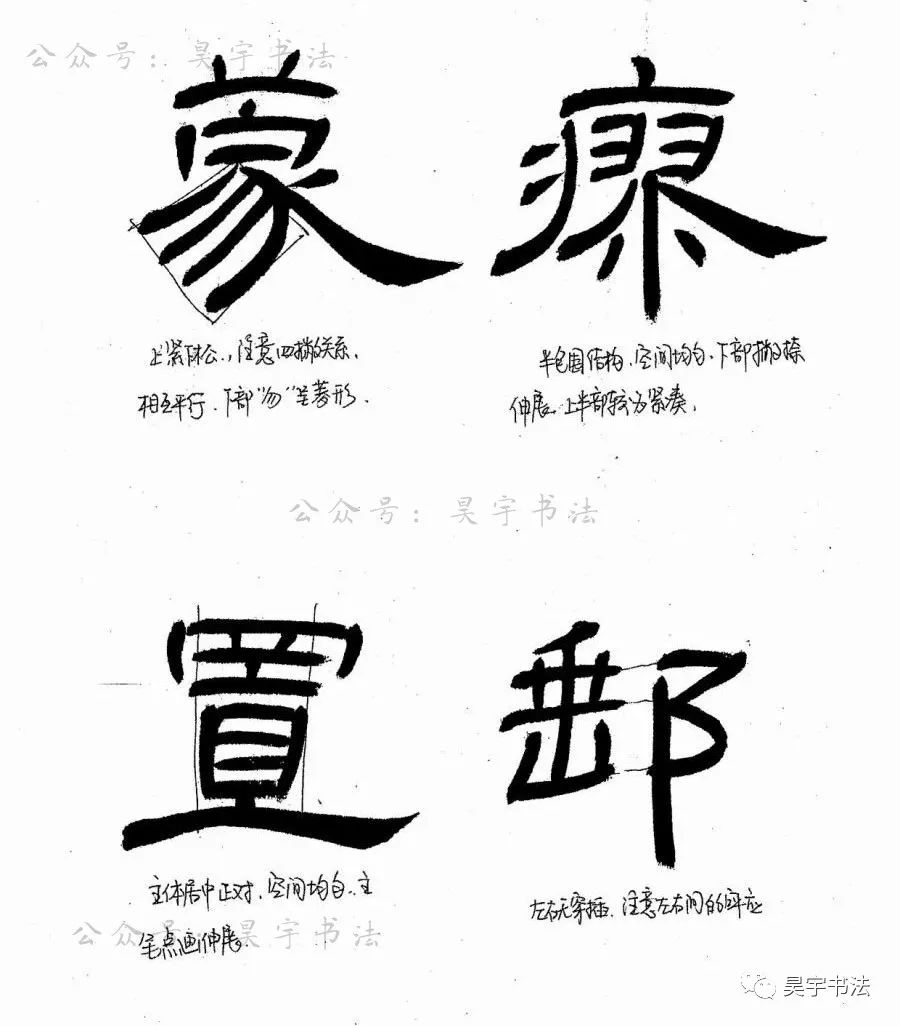 公众号：昊宇书法
蒙
瘳
上紧下松，注意四撇的关系，
相互平行．下部“勿”呈菱形．
半包围结构，空间均匀．下部撇捺
伸展．上半部较为紧凑，
公众号：昊宇书法
置
郵
主体居中正对，空间均匀．主
笔点画伸展
左右无穿插．注意左右间的呼应
公众号：昊宇书法
昊宇书法